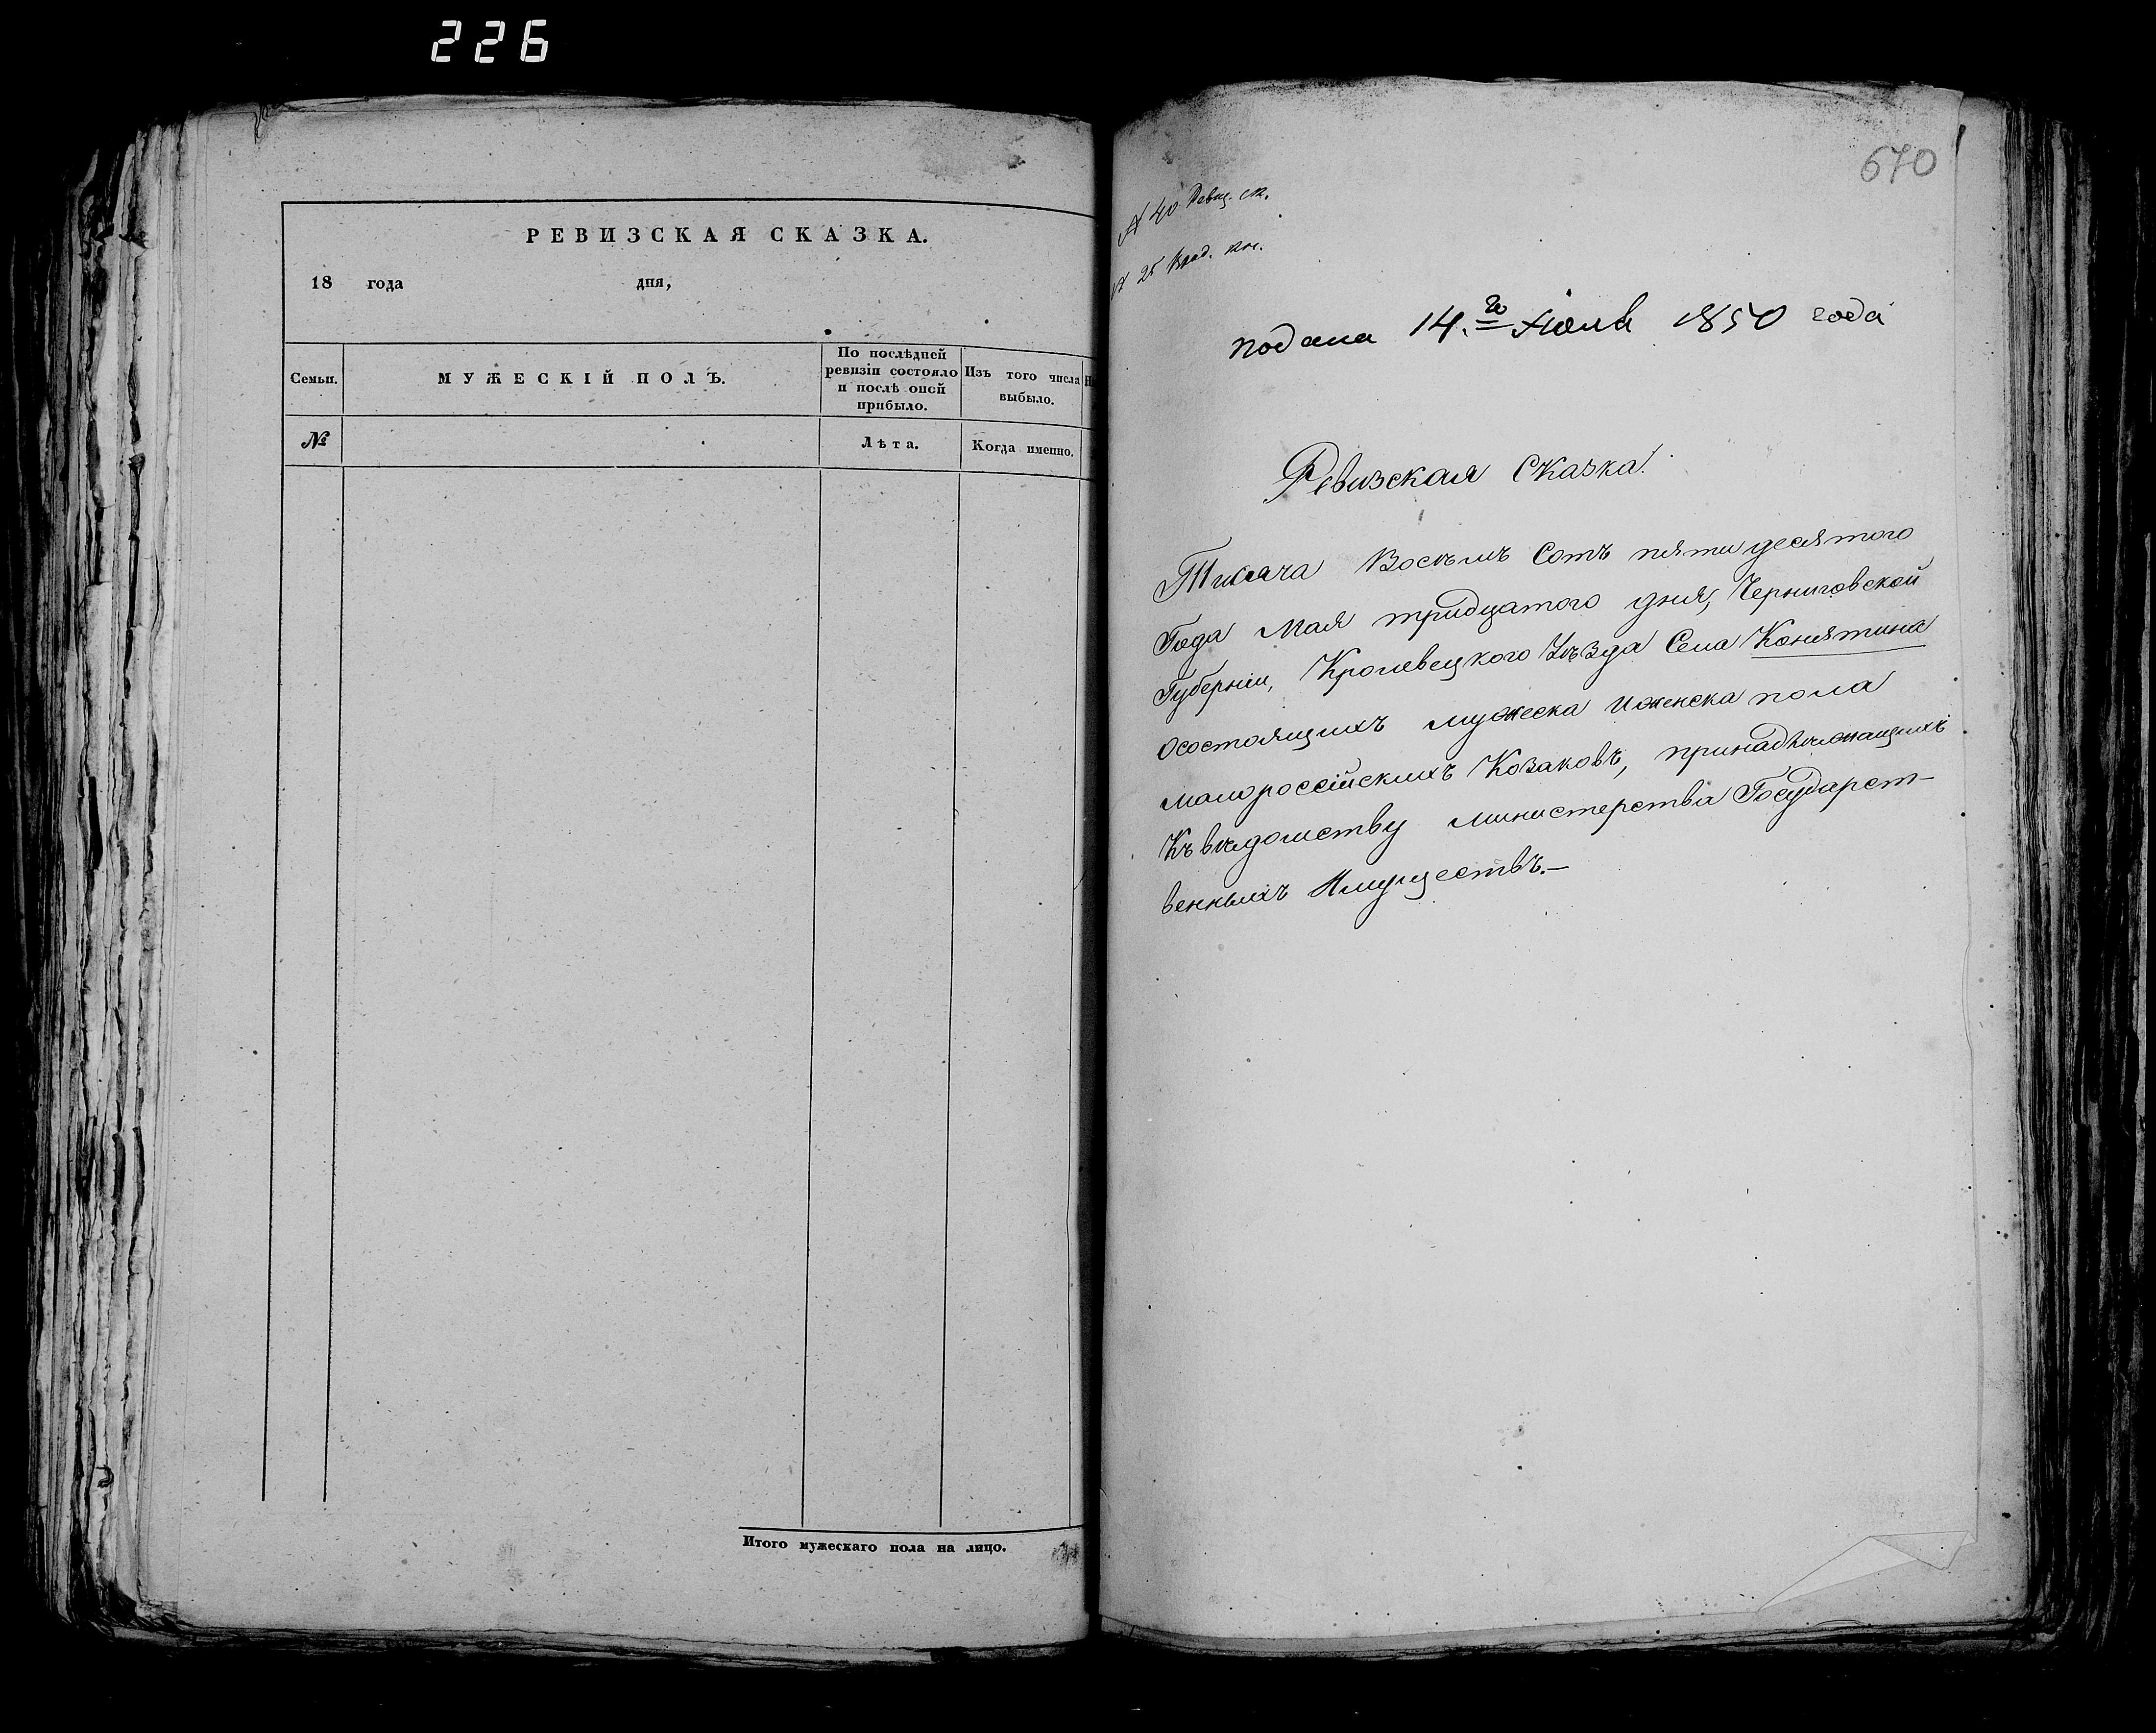 226
РЕВИЗСКАЯ СКАЗКА.
18 года дня,
Семьи.
МУЖЕСКІЙ ПОЛЪ.
По послѣдней
ревизіи состояло
и послѣ оной
прибыло.
Изъ того числа
выбыло.
№
Лѣта.
Когда именно.
Итого мужескаго пола на лицо.
670
№ 40 Ревиз. ск.
№ 25 кн.
подана 14.го Іюля 1850 года
Ревизская Сказка.
Тисяча Восемъ Сотъ пятидесятого
Года Мая тридцатого дня, Черниговской
Губерніи, Кролевецкого Уѣзда Села Конятина
осостоящихъ мужеска иженска пола
малороссійскихъ Козаковъ, принадлежащихъ
Къ вѣдомству министерства Государст-
венныхъ Имуществъ.—